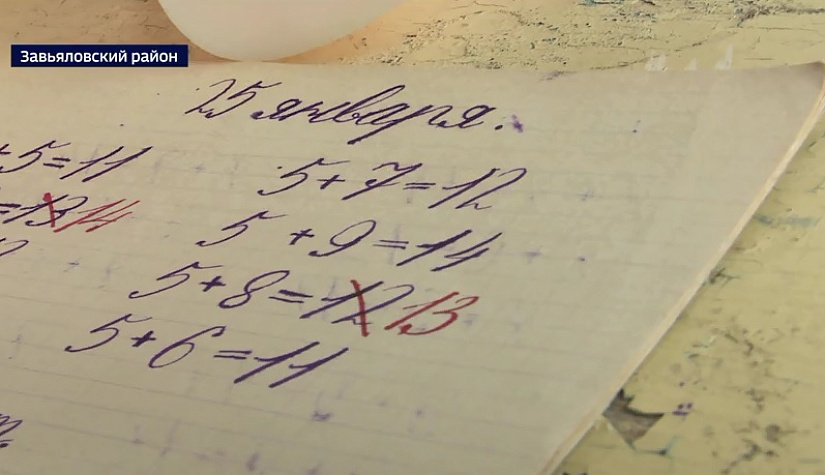 Завьяловский район
25 января.
+5=11
5+7=12
=13 14
5+9=14
5+8=12 13
5+6=11